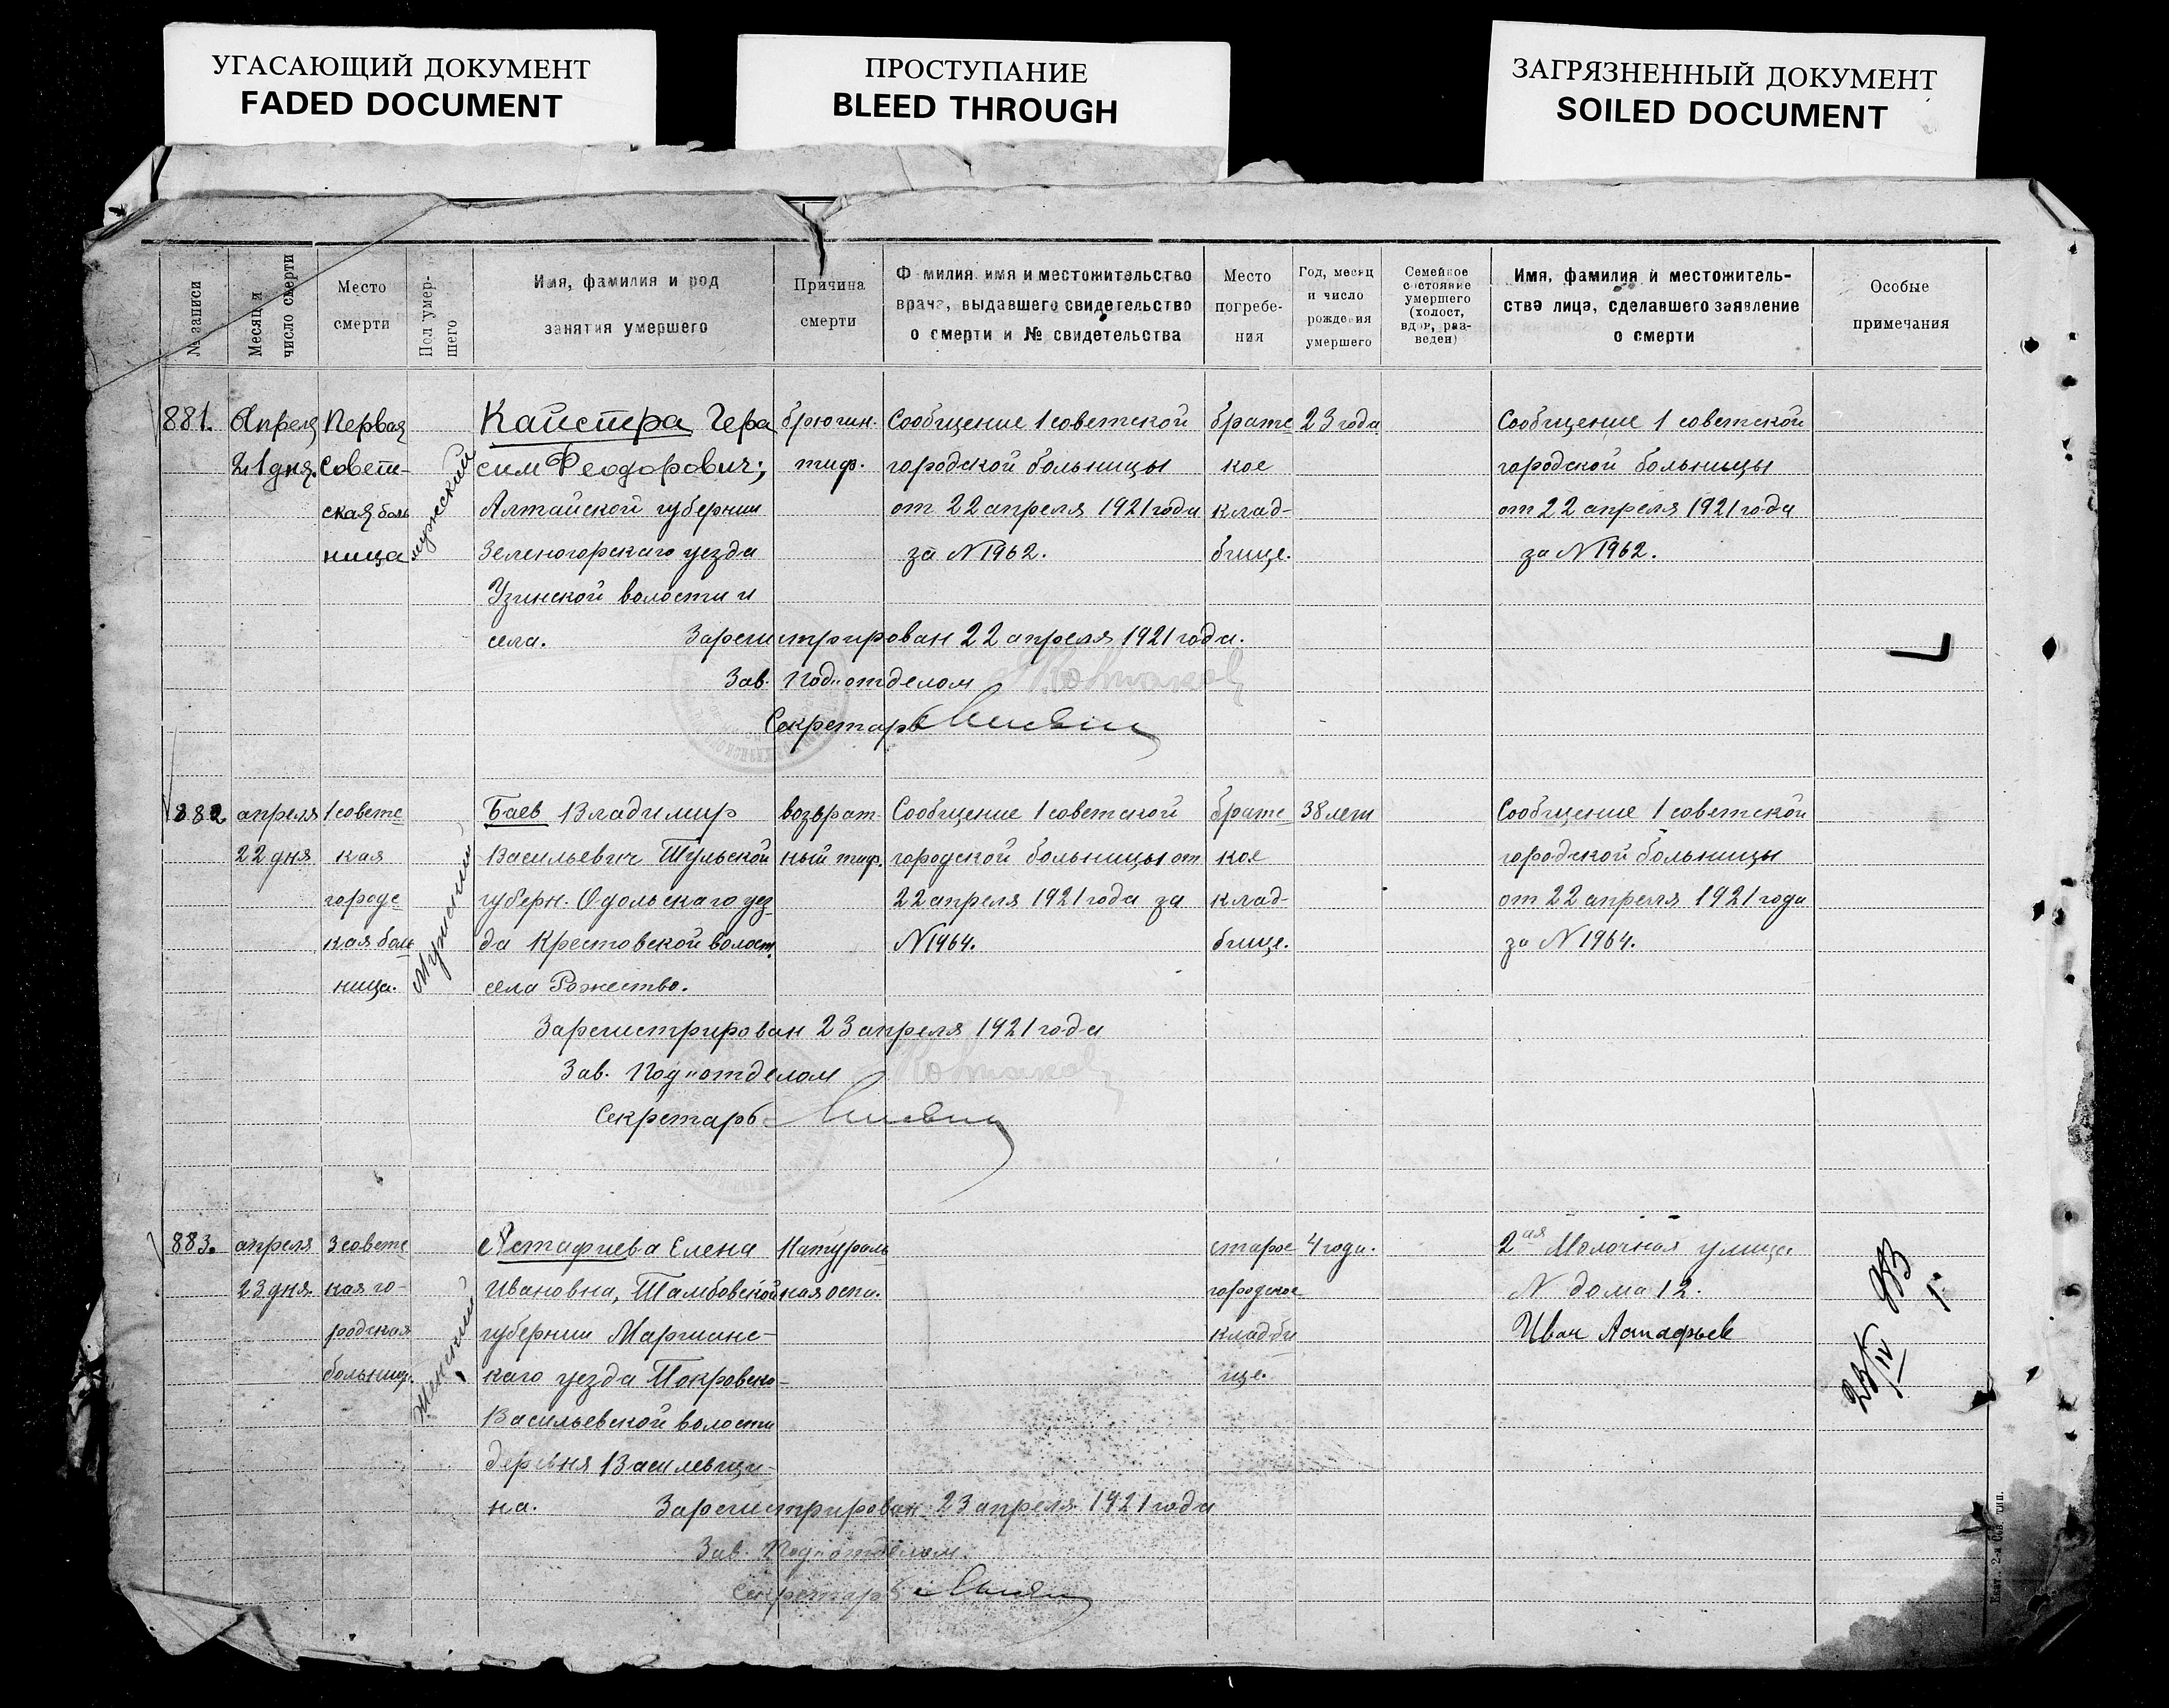 УГАСАЮЩИЙ ДОКУМЕНТ
FADED DOCUMENT
ПРОСТУПАНИЕ
BLEED THROUGH
ЗАГРЯЗНЕННЫЙ ДОКУМЕНТ
SOILED DOCUMENT
№ записи
Месяц и
число смерти
Место
смерти
Пол умер-
шего
Имя, фамилия и род
занятия умершего
Причина
смерти
Ф милия имя и местожительство
врача, выдавшего свидетельство
о смерти и № свидетельства
Место
погребе-
ния
Год, месяц
и число
рождения
умершего
Семейное
состояние
умершего
(холост,
вдов, раз-
веден)
Имя, фамилия и местожитель-
ство лица, сделавшего заявление
о смерти
Особые
примечания
881.
Апреля
21 дня.
Первая
Совет-
ская боль
ница
мужский
Кайстра Гера
сим Феодорович;
Алтайской губернии
Зеленогорскаго уезда
Узинской волости и
села.
брюшн.
тиф.
Сообщение 1 советской
городской больницы
от 22 апреля 1921 года
за N 1962.
братс
кое
клад-
бище.
23 года
Сообщение 1 советской
городской больницы
от 22 апреля 1921 года
за N 1962.
Зарегистрирован 22 апреля 1921 года.
Зав. Под"отделом
Секретарь
882
апреля
22 дня
1 советс
кая
городс
кая боль
ница.
Мужский
Баев Владимир
Васильевич Тульской
губерн. Одольскаго уез
да Крестовской волост.
села Рожество.
возврат
ный тиф.
Сообщение 1 советской
городской больницы от
22 апреля 1921 года за
N 1964.
братс
кое
клад-
бище.
38 лет
Сообщение 1 советской
городской больницы
от 22 апреля 1921 года
за N 1964.
Зарегистрирован 23 апреля 1921 года
Зав. Под"отделом
Секретарь
883.
апреля
23 дня.
3 советс
кая го-
родская
больниц.
Женский
Астафиева Елена
Ивановна, Тамбовской
губернии Маршанс-
каго уезда Покровско-
Васильевской волости
деревня Василевщи-
на.
Натураль
ная оспа.
старое
городское
кладби
ще.
4 года.
2ая Молочная улица
N дома 12.
Иван Астафьев
23/IV
Зарегистрирован 23 апреля 1921 года
Зав. Под"отделом.
Секретарь
Екат. 2-я Сов. тип.